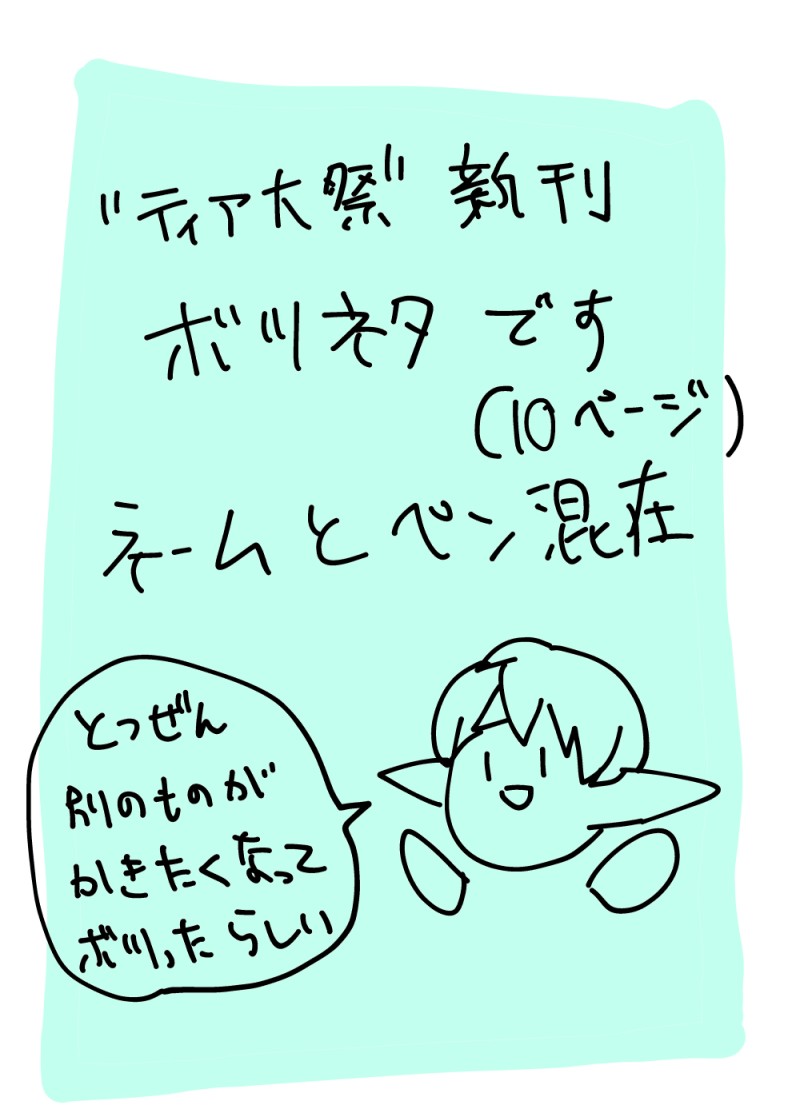 "ティア大祭" 新刊
ボツネタ です
(10ページ)
ネームとペン混在
とつぜん
別のものが
かきたくなって
ボツったらしい